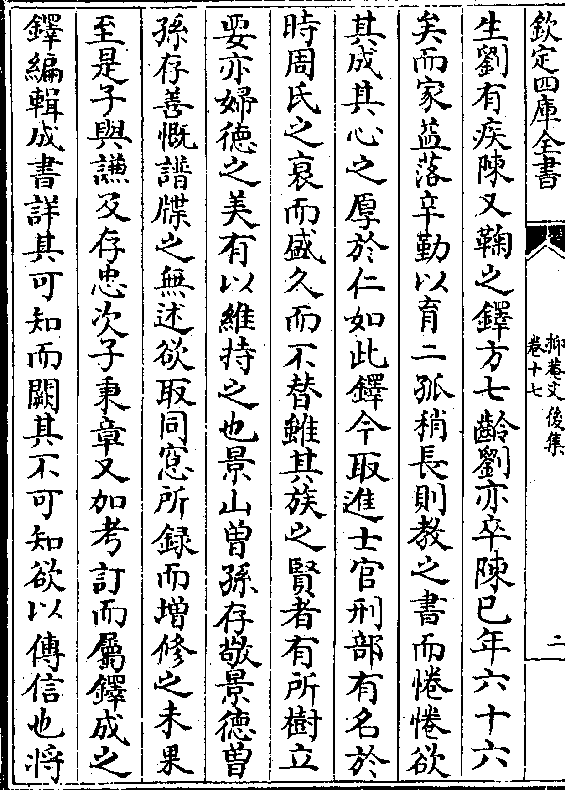 欽定四庫全書
抑菴文後集
卷十七
二
生劉有疾陳又鞠之鐸方七齡劉亦卒陳已年六十六
矣而家益落辛勤以育二孤稍長則教之書而惓惓欲
其成其心之厚於仁如此鐸今取進士官刑部有名於
時周氏之衰而盛久而不替雖其族之賢者有所樹立
要亦婦德之美有以維持之也景山曾孫存敬景德曾
孫存善慨譜牒之無述欲取同窓所録而增修之未果
至是子與謙及存忠次子秉章又加考訂而屬鐸成之
鐸編輯成書詳其可知而闕其不可知欲以傳信也將